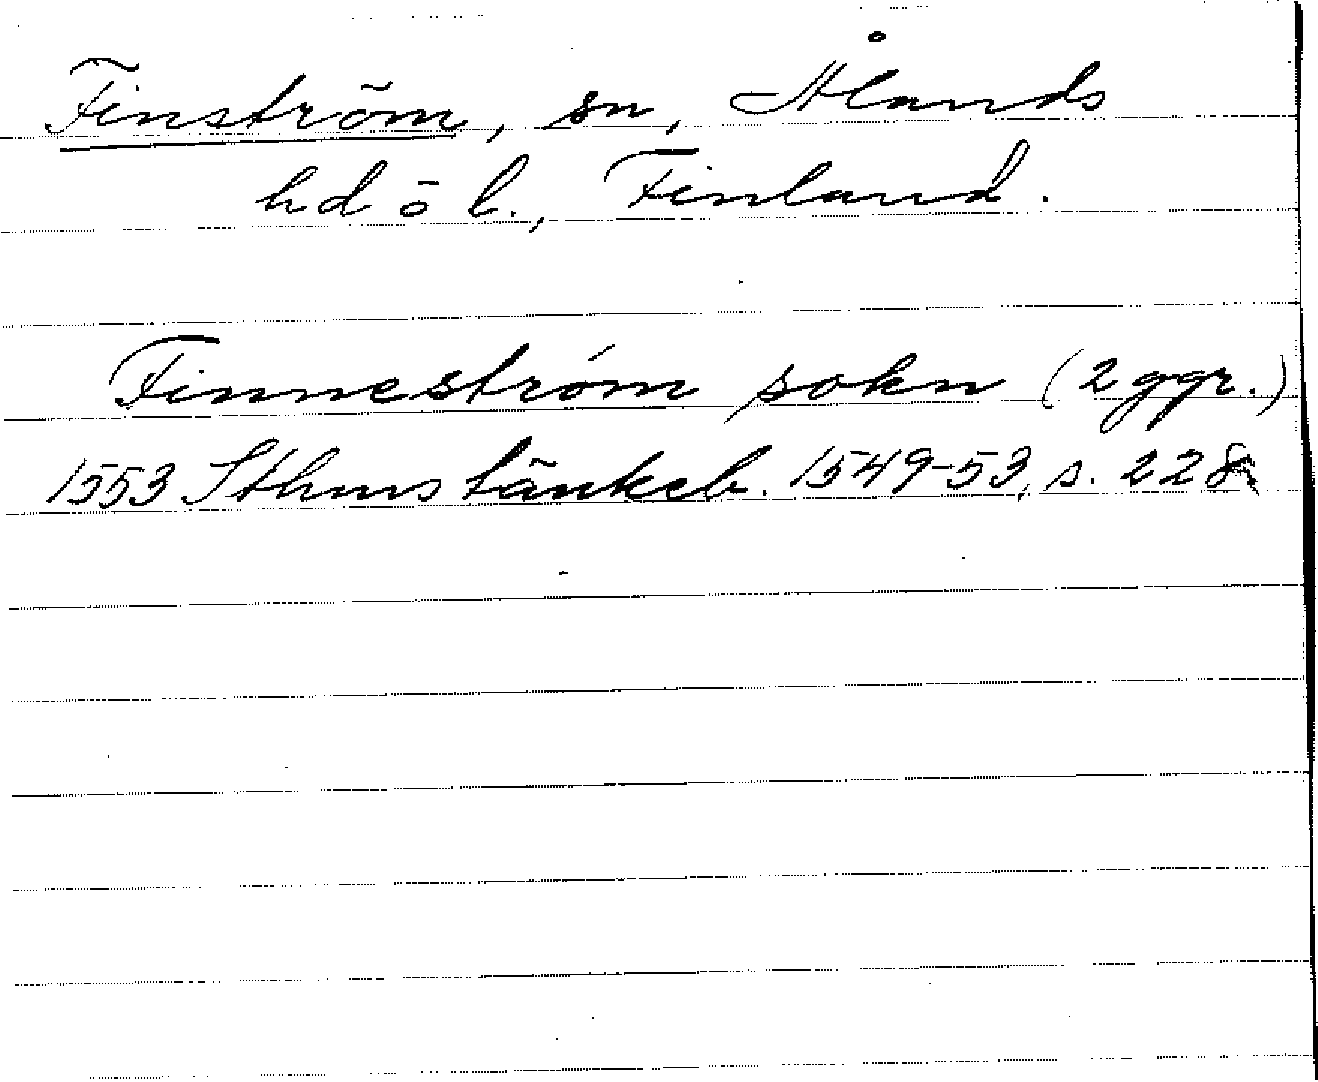 Finström, sn, Ålands
hd o l., Finland.
Finneström sokn (2 ggr.)
1553 Sthms tänkeb. 1549-53, s. 228